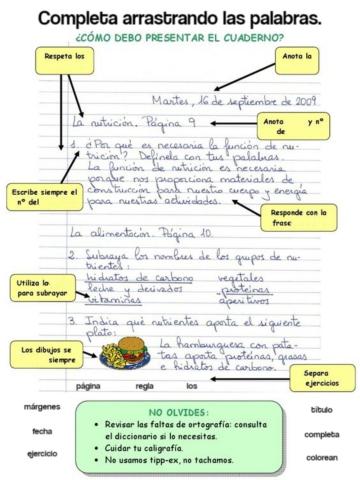 Completa arrastrando las palabras.
¿CÓMO DEBO PRESENTAR EL CUADERNO?
Respeta los
Anota la
Martes, 16 de septiembre de 2009
La nutrición. Página 9
Anota y nº
de
1. ¿Por qué es necesaria la función de nu-
trición? Defínela con tus palabras.
La función de nutrición es necesaria
porque nos proporciona materiales de
construcción para nuestro cuerpo y energía
para nuestras actividades.
Escribe siempre el
nº del
Responde con la
frase
La alimentación. Página 10.
2. Subraya los nombres de los grupos de nu-
trientes:
hidratos de carbono vegetales
leche y derivados proteínas
vitaminas aperitivos
Utiliza la
para subrayar
3. Indica qué nutrientes aporta el siguiente
plato:
La hamburguesa con pata-
tas aporta proteínas, grasas
e hidratos de carbono.
Los dibujos se
siempre
Separa
ejercicios
página regla los
márgenes
fecha
ejercicio
NO OLVIDES:
• Revisar las faltas de ortografía: consulta
el diccionario si lo necesitas.
• Cuidar tu caligrafía.
• No usamos tipp-ex, no tachamos.
título
completa
colorean